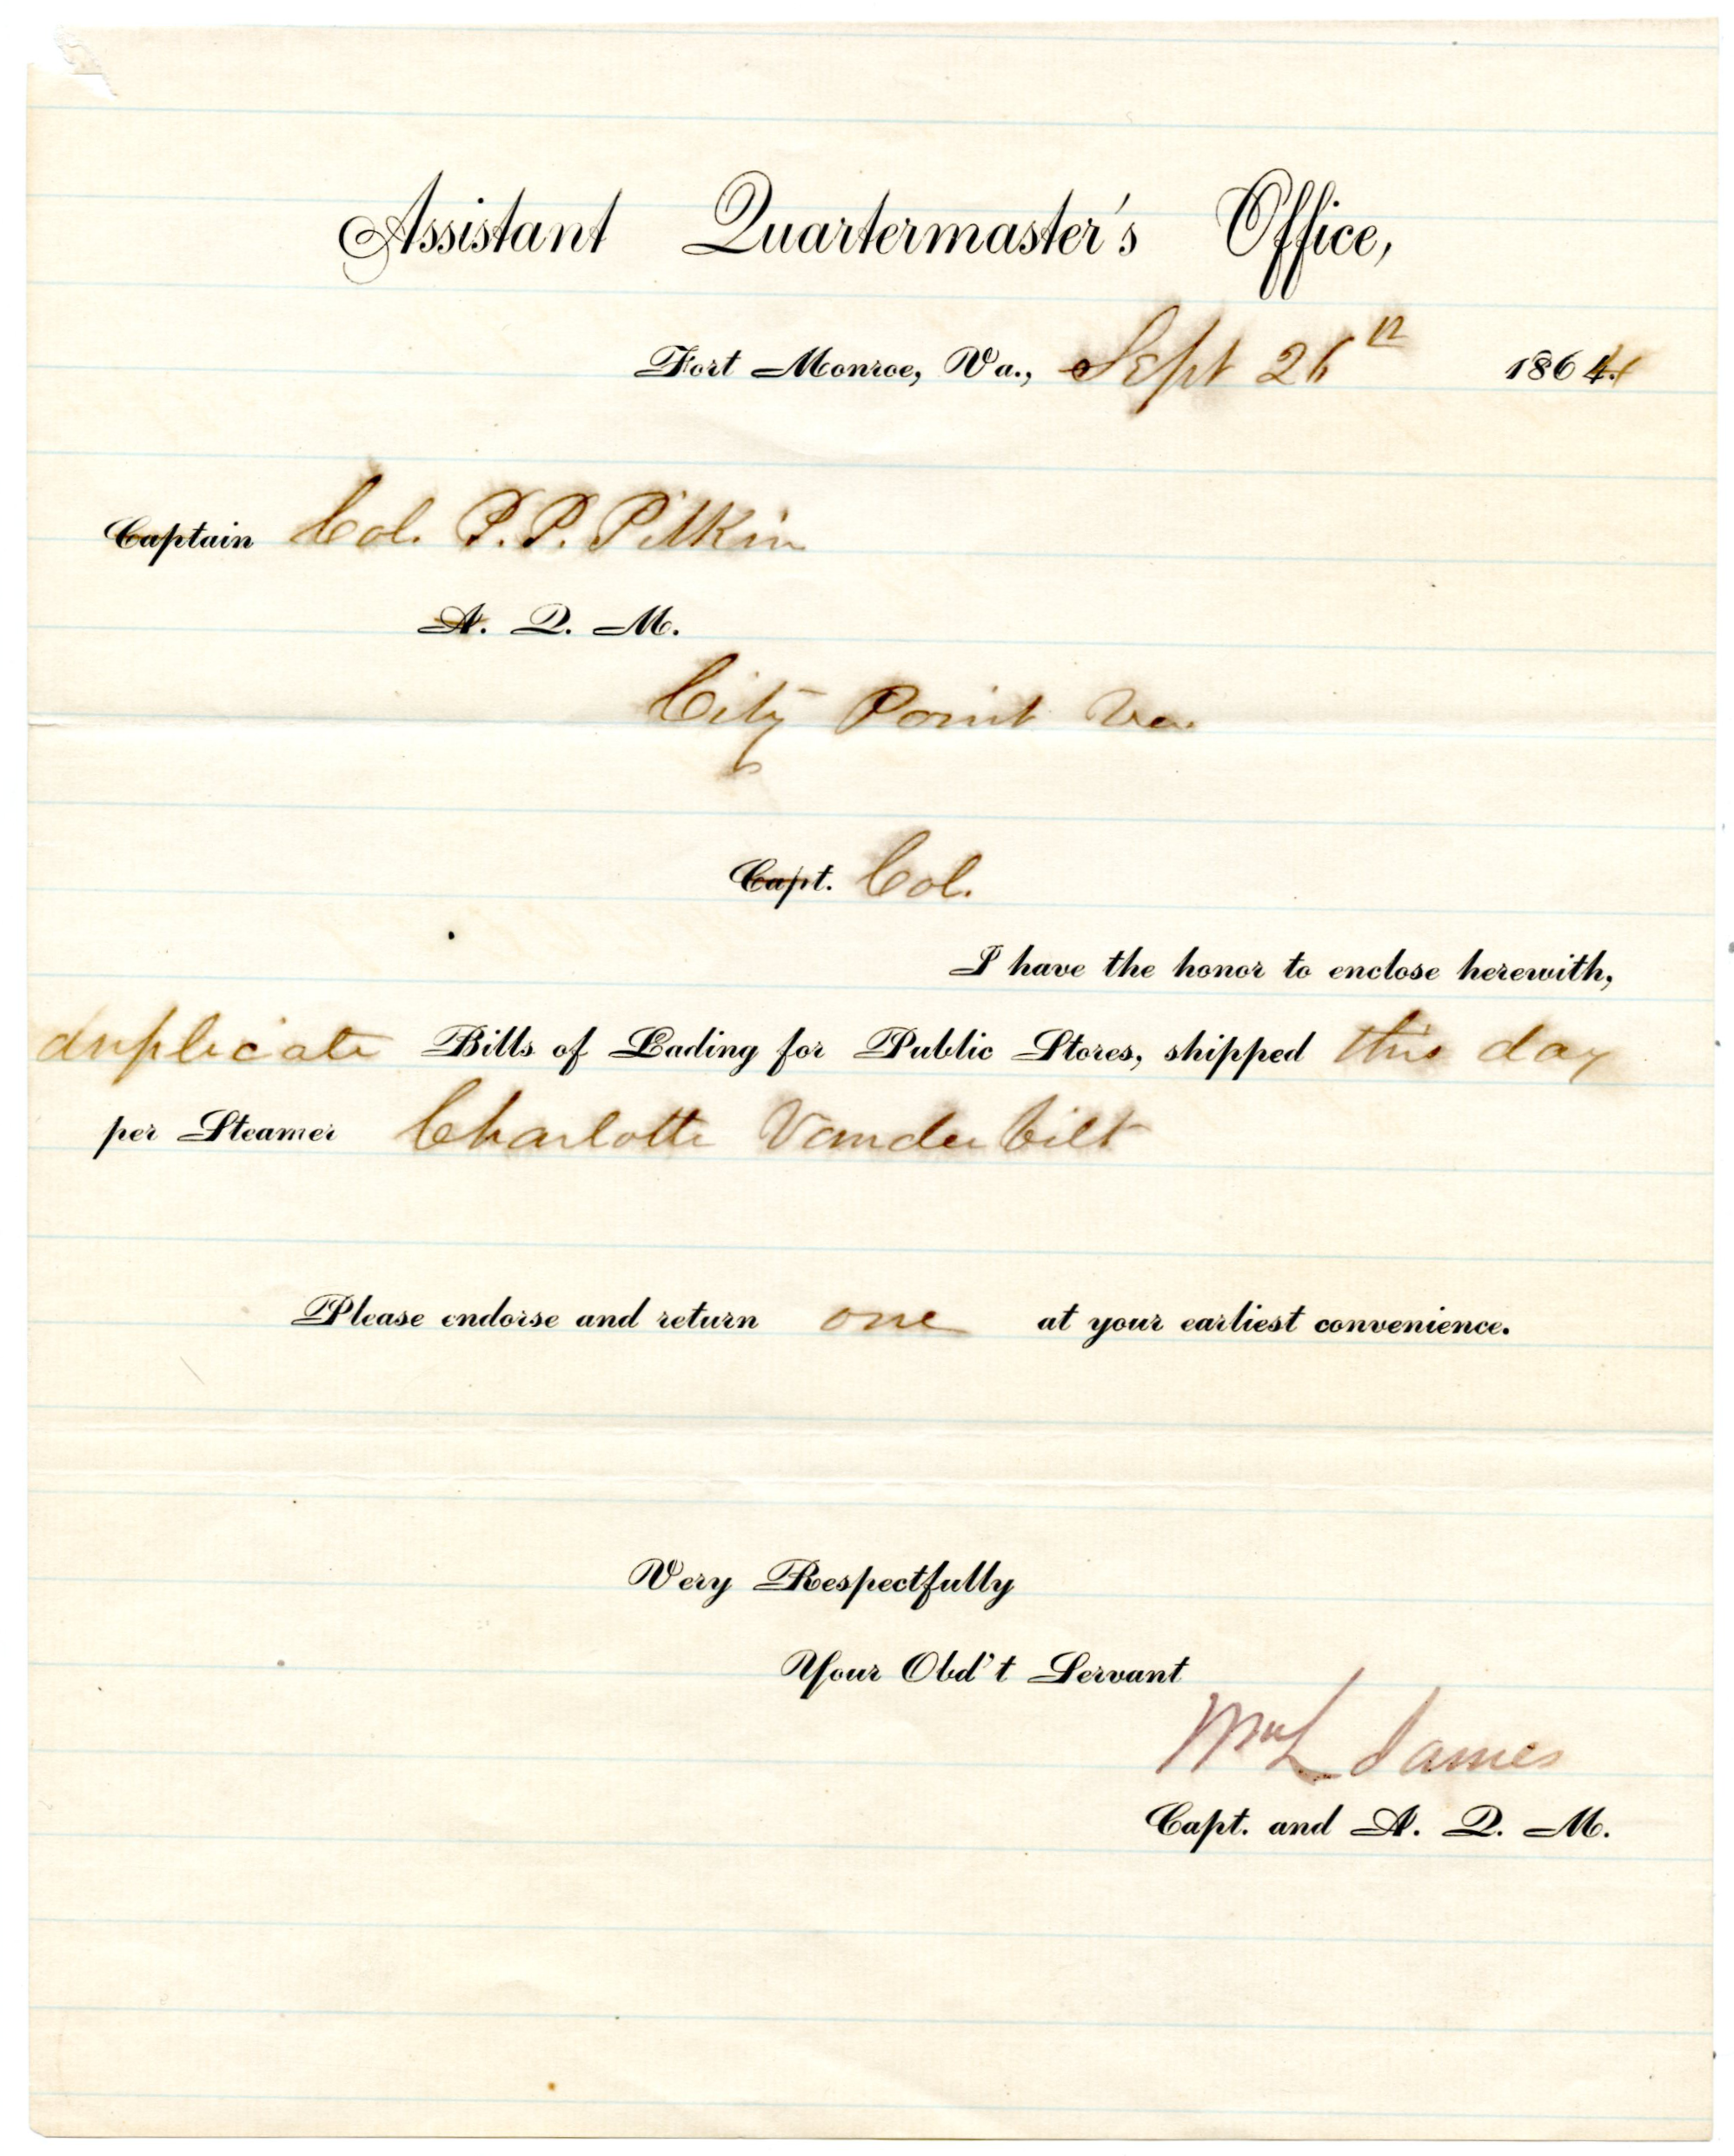 Assistant Quartermaster's Office,
Fort Monroe, Va., Sept 26th 1864
Captain Col. P.P. Pitkin
A. Q. M.
City Point Va.
Capt. Col.
I have the honor to enclose herewith,
duplicate Bills of Lading for Public Stores, shipped this day
per Steamer Charlotte Vanderbilt
Please endorse and return one at your earliest convenience.
Very Respectfully
Your Obd't Servant
Wm L James
Capt. and A. Q. M.